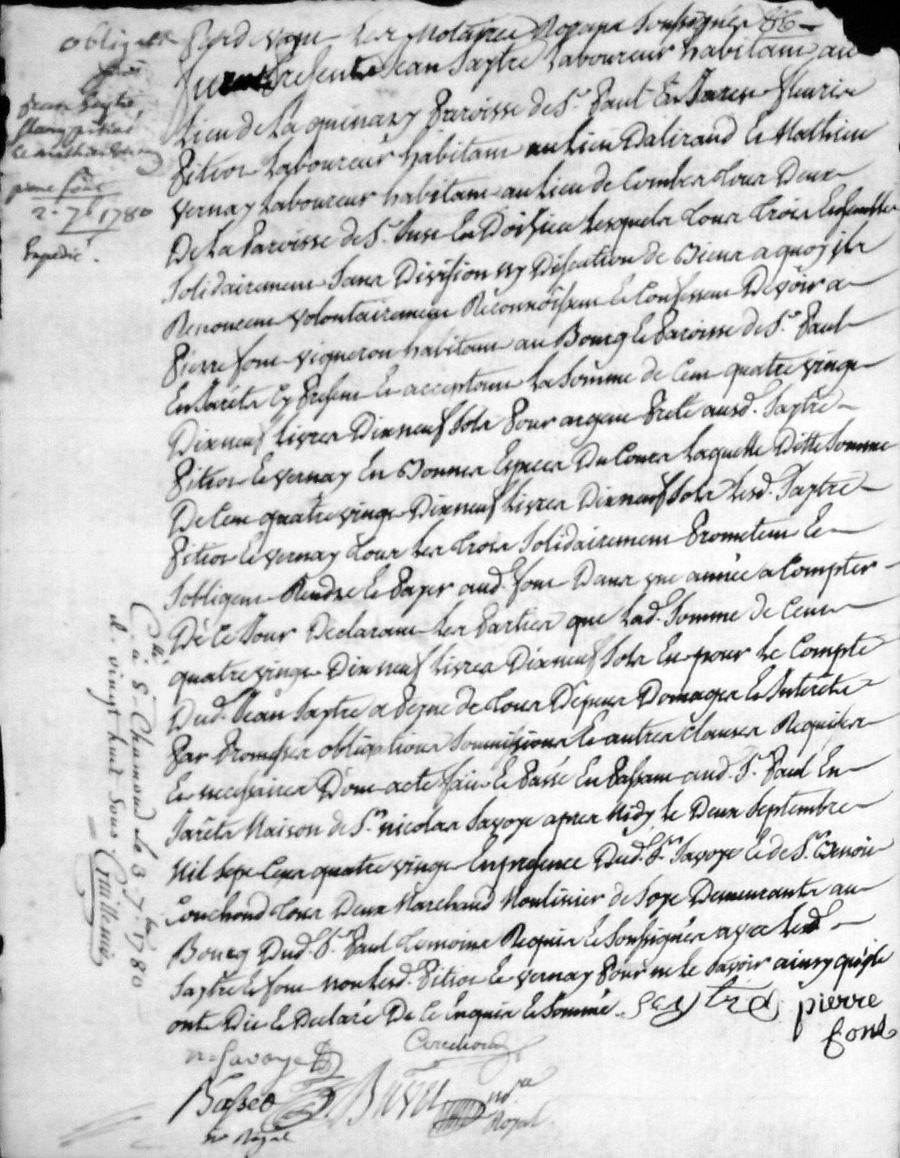 obligaõn
pour
Jean Seytre
fleury pitiot
et mathieu vernay
pierre font
2. 7.b 1780
Expedié.
Pardevant Les Notaires Royaux Soussignés
furent Presents Jean Saytre Laboureur habitant au
Lieu de La quinary Paroisse de St. Paul En Jarest fleurie
Pitiot Laboureur habitant au Lieu Daliraud Et Mathieu
Vernay Laboureur habitant au Lieu de Combes tous Deux
De La Paroisse de St. Just En Doisieu Lesquels tous trois Ensemble
Solidairement Sans Division ny Discution de Biens a quoy ils
Renoncent volontairement Reconnoissent Et Confessent Devoir a
Pierre font vigneron habitant au Bourg Et Paroisse de St. Paul
En Jarets Cy Present Et acceptant La Somme de Cent quatre vingt
Dixneuf Livres Dixneuf Sols Pour argent Preté ausd. Saytre
Pitiot Et Vernay En Bonnes Especes Du Cours Laquelle Ditte Somme
De Cent quatre vingt Dixneuf Livres Dixneuf Sols Lesd. Saytre
Pitiot Et Vernay tous Les trois Solidairement Prometent Et
Sobligent Rendre Et Payer aud. font Dans une année a Compter
De Ce Jour Declarant Les Parties que Lad. Somme de Cent
quatre vingt Dixneuf Livres Dixneuf Sols Est pour Le Compte
Dud. Jean Saytre a Peine de tous Dépens Domages Et Interêts
Par Promesses obligations Soumissions Et autres Clauses Requises
Et necessaires Dont acte fait Et Passé En Passant aud. St. Paul En
Jarêts Maison de Sr. nicolas Savoye apres Midy le Deux Septembre
Mil Sept Cent quatre vingt En presence Dud. Sr. Savoye Et de Sr. Benoit
Couchond tous Deux Marchand Moulinier de Soye Demeurants au
Bourg Dud. St. Paul temoins Requis Et Soussignés avec Led.
Saytre Et font non Lesd. Pitiot Et Vernay Pour ne le Savoir ainsy quils
ont Dit Et Declaré De Ce Enquis Et Sommé. Seytre pierre
font
n. Savoye Couchond
Basset
nre. Royal
Royal
Cllé. à St. Chamond le 3. 7.bre 1780
r. vingt huit sous. Guillemin